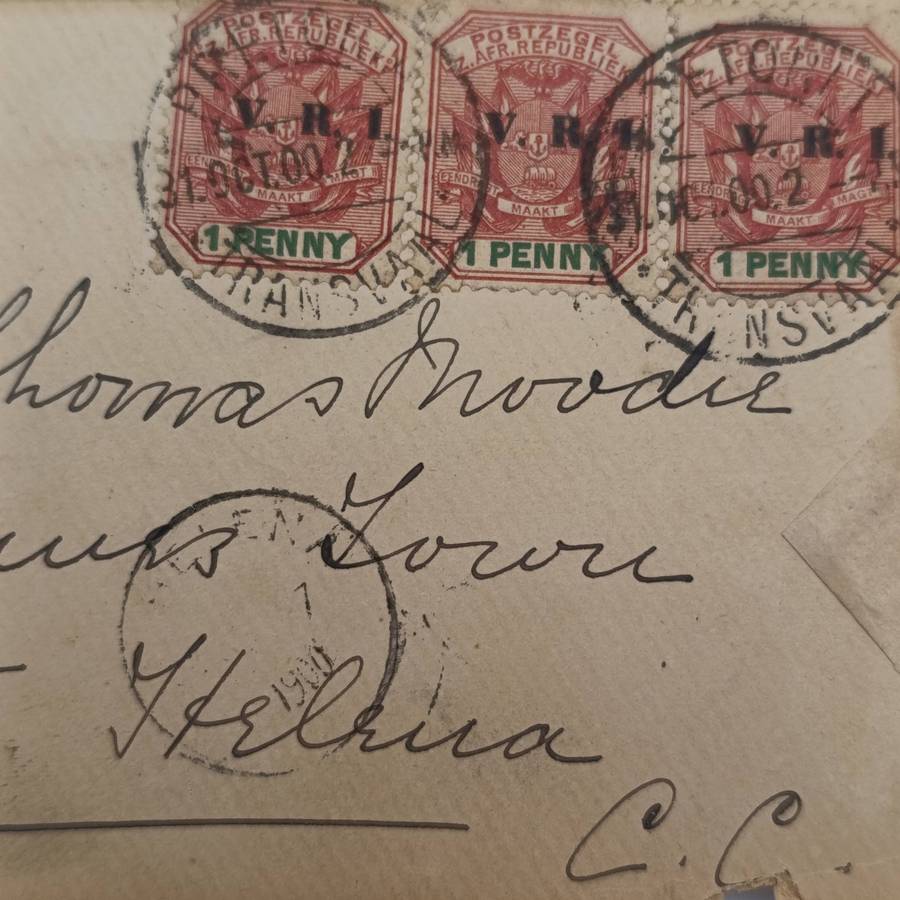 POSTZEGEL POSTZEGEL POSTZEGEL
Z.AFR.REPUBLIEK Z.AFR.REPUBLIEK Z.AFR.REPUBLIEK
V. R. I. V. R. I. V. R. I.
EENDRAGT MAAKT MAGT EENDRAGT MAAKT EENDRAGT MAAKT MAGT
1 PENNY 1 PENNY 1 PENNY
31.OCT.00.2
TRANSVAAL.
31.OCT.00.2
TRANSVAAL.
Thomas Moodie
Town
1
1900
Helena
C. C.